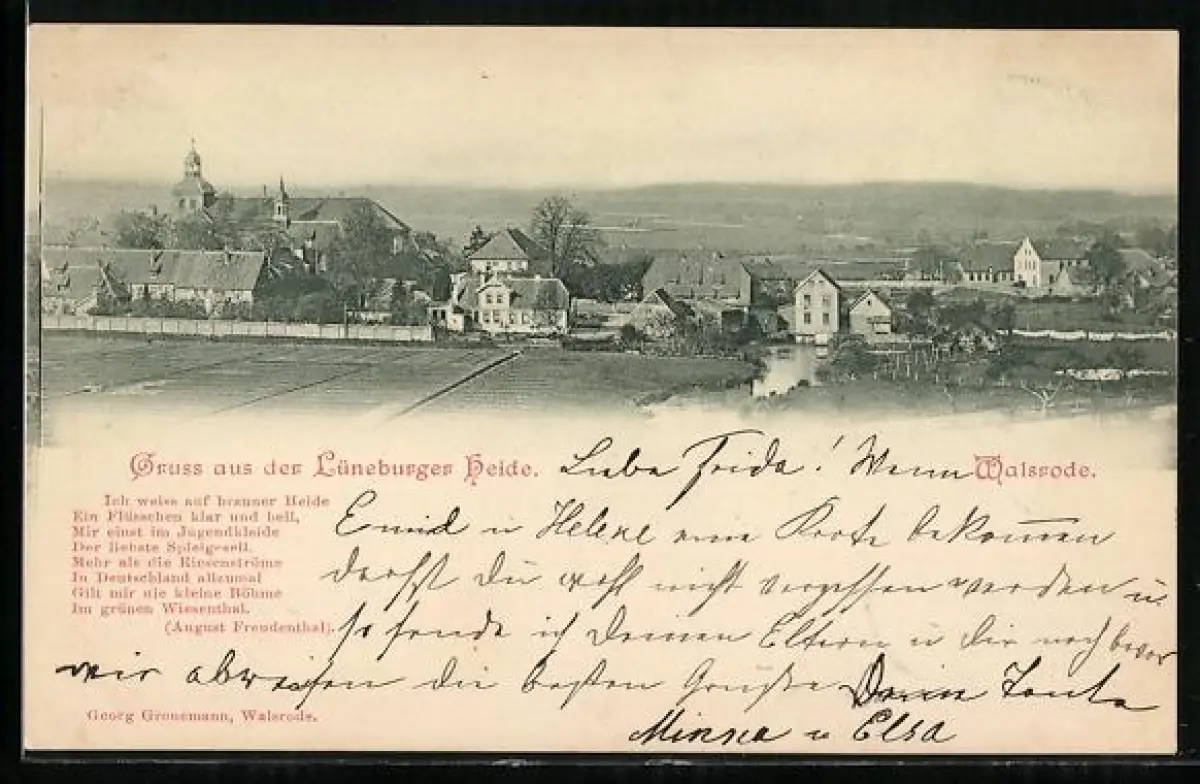 Gruss aus der Lüneburger Heide. Liebe Frida! Wenn Walsrode.
Ich weiss auf brauner Heide
Ein Flüsschen klar und hell,
Mir einst im Jugendkleide
Der liebste Spielgesell.
Mehr als die Riesenströme
In Deutschland allzumal
Gilt mir die kleine Böhme
Im grünen Wiesenthal.
(August Freudenthal).
Georg Gronemann, Walsrode.
u Helene eine Karte bekommen
darfst Du wohl nicht vergessen werden u.
so sende ich Deinen Eltern u Dir noch bevor
wir abreisen die besten Grüße Deine Tante
u Elsa